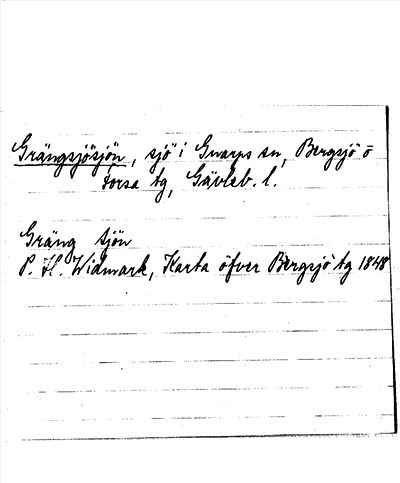 Grängsjösjön, sjö i Gnarps sn, Bergsjö o
Forsa tg, Gävleb. l.
Gräng sjön
P. H. Widmark, Karta öfver Bergsjö tg 1848